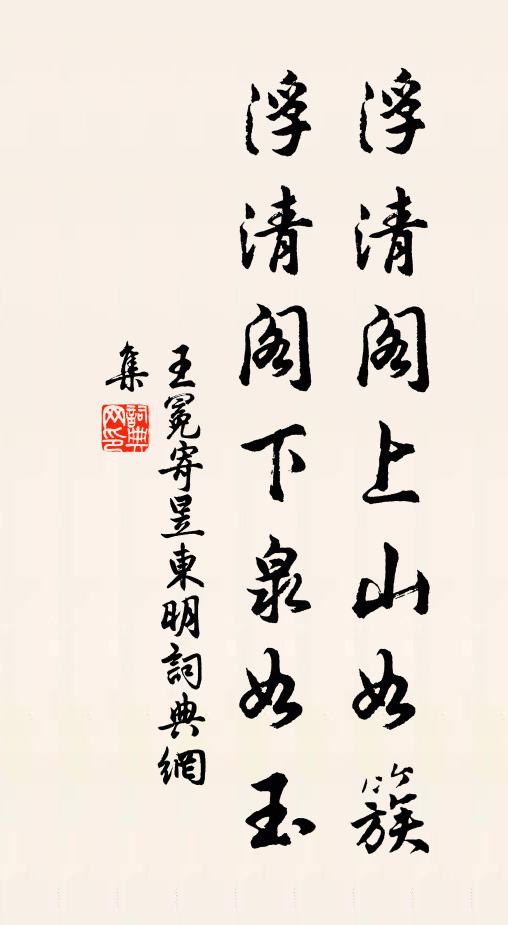 浮清阁上山如簇
浮清阁下泉如玉
王冕寄昱東明詞典網
集
詞典网印